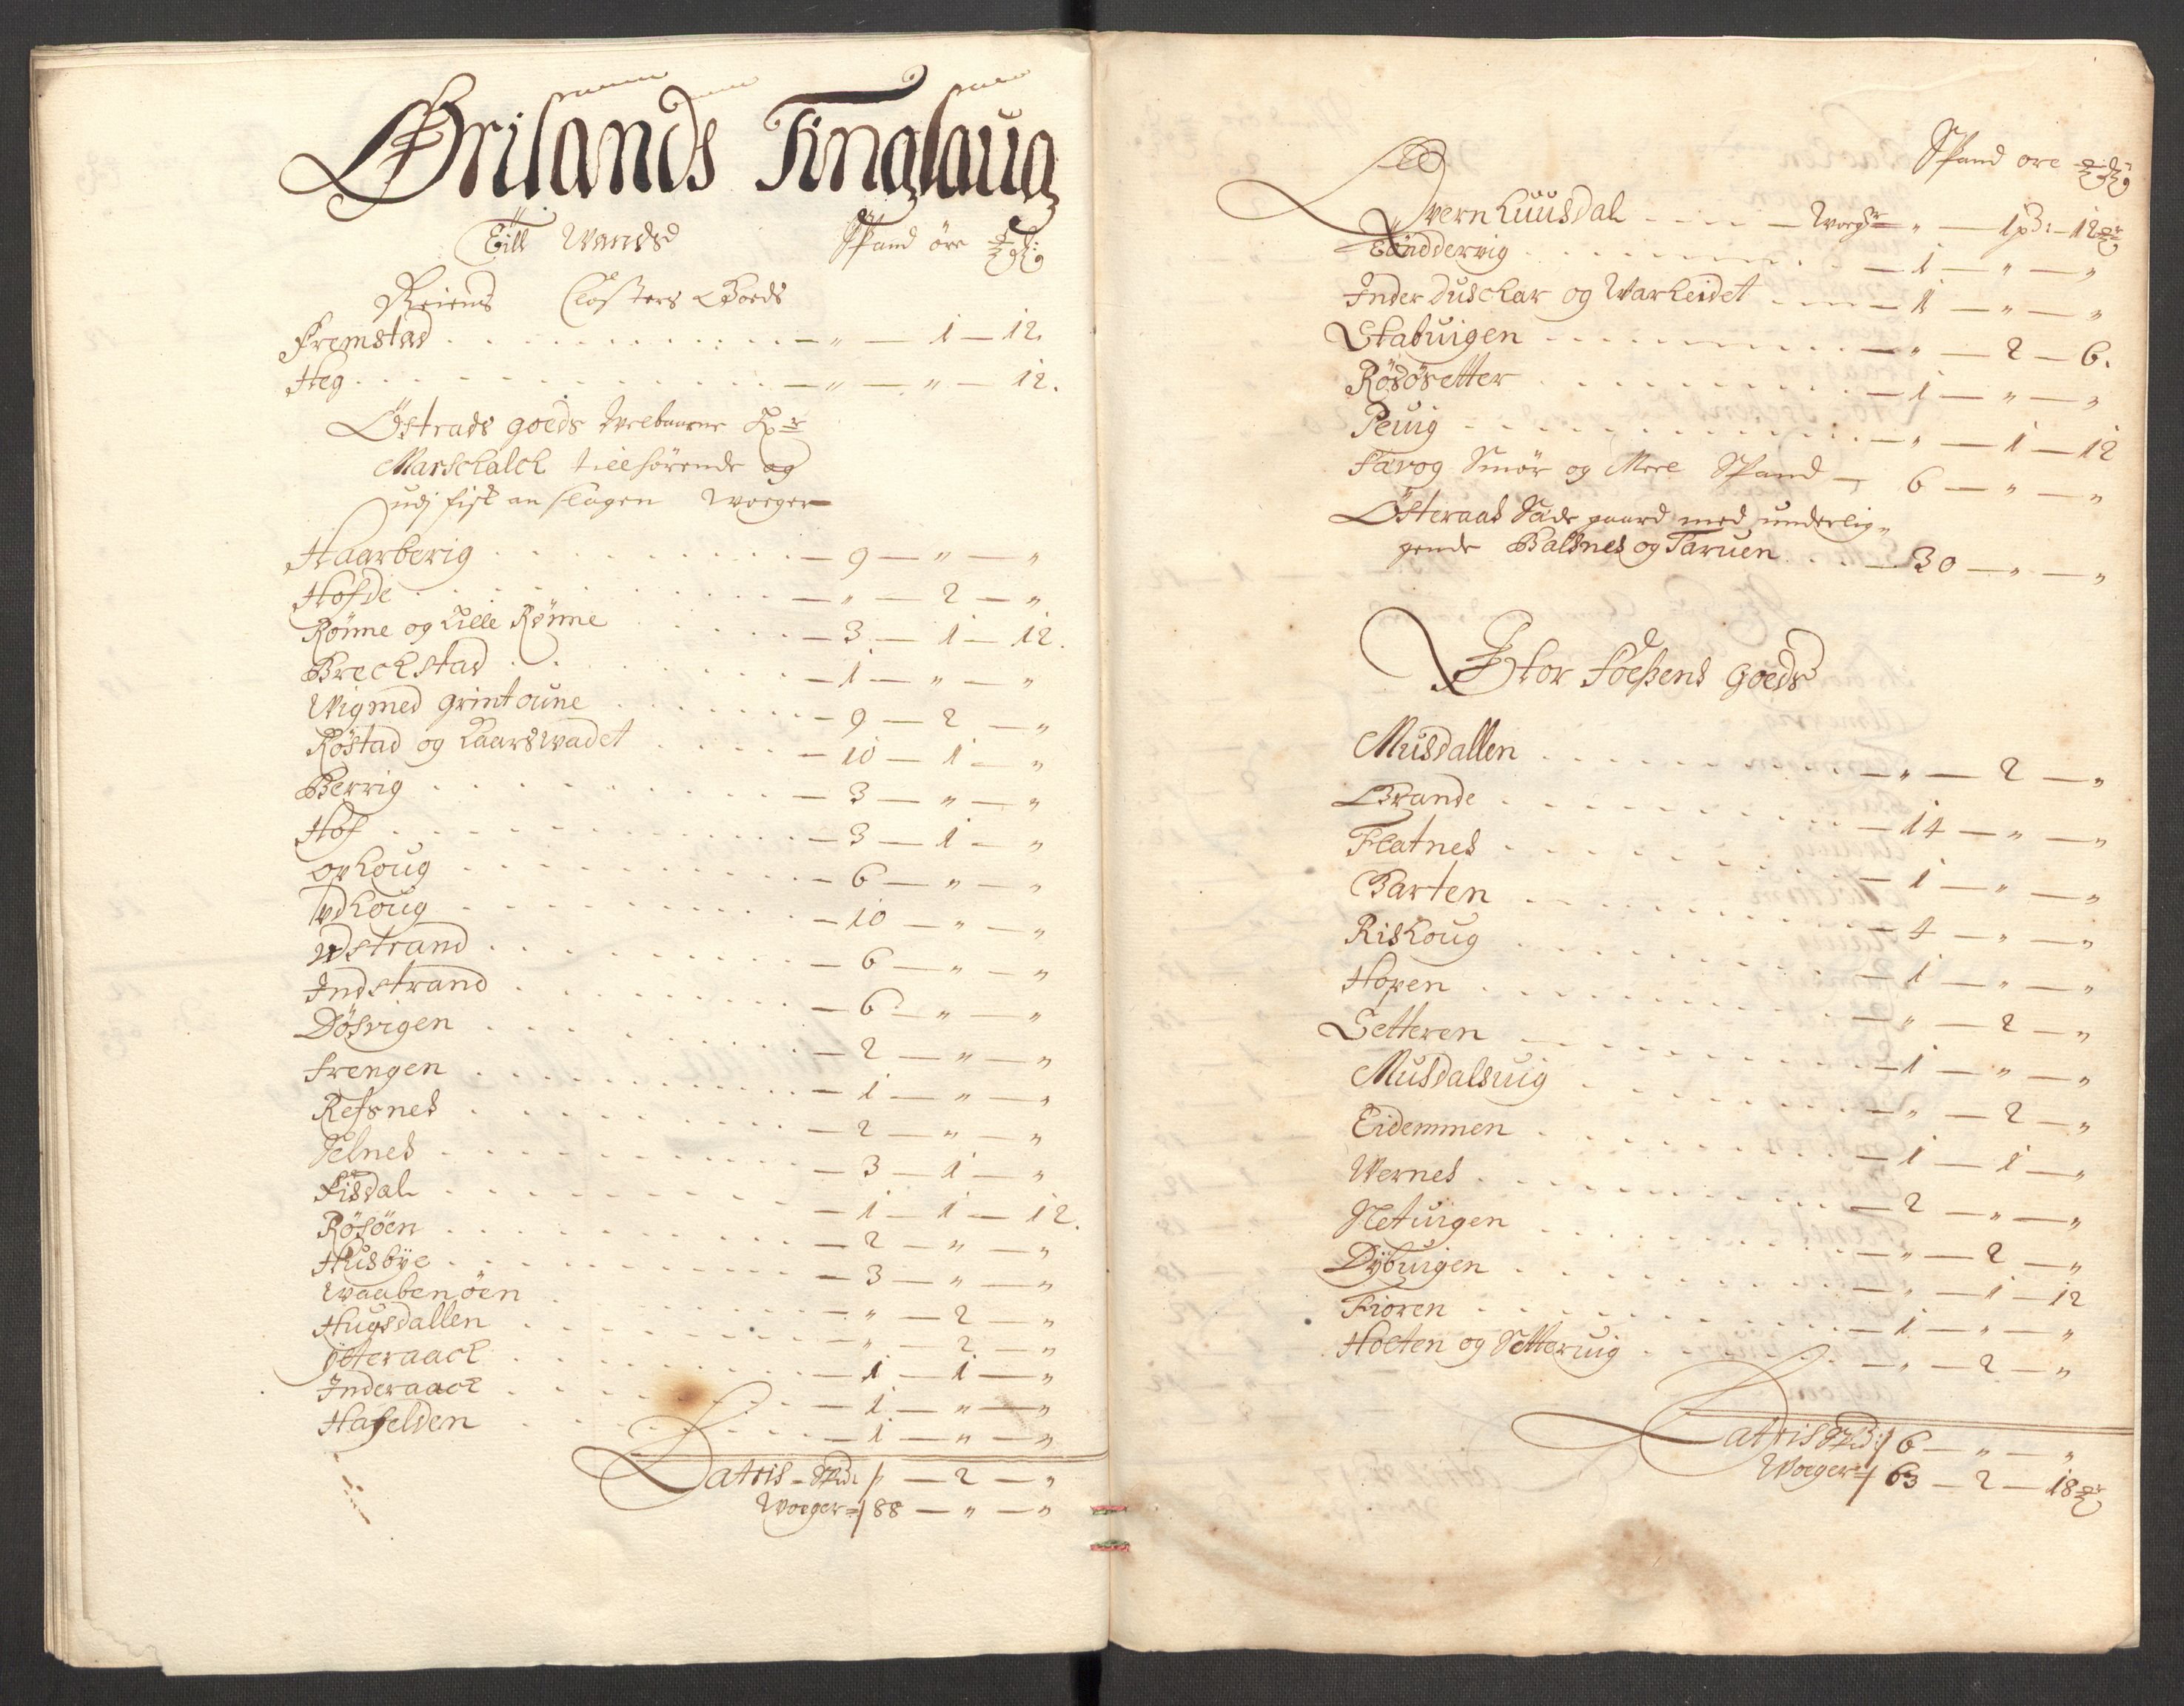 Ørilands Tinglaug
Till Wands Spand öre
Reiens Closters Goeds
Fremstad - „ - 1 - 12.
Heg - „ - „ - 12.
Östrads goeds Welbaarne Hr
Marschalck tillhörende og
udj fisk anslagen Woeger
Haarberig - 9 - „ - „
Hofde - „ - 2 - „
Rönne og Lille Rönne - 3 - 1 - 12.
Breckstad - 1 - „ - „
Wig med grintoune - 9 - 2 - „
Röstad og Kaarswadet - 10 - 1 - „
Berrig - 3 - „ - „
Hof - 3 - 1 - „
ophoug - 6 - „ - „
Udhoug - 10 - „ - „
Udstrand - 6 - „ - „
Indstrand - 6 - „ - „
Dösvigen - 2 - „ - „
Frengen - 1 - „ - „
Refsnes - 2 - „ - „
Selnes - 3 - 1 - „
Fisdal - 1 - 1 - 12.
Rösöen - 2 - „ - „
Husbye - 3 - „ - „
Waabenöen - „ - 2 - „
Hugsdallen - „ - 2 - „
Ytteraack - 1 - 1 - „
Inderaack - 1 - „ - „
Hafelden - 1 - „ - „
Latris - Spd: / - 2 - „
Woeger / 88 - „ - „
Spand öre
Woegr „ - 1 p3: - 12
- 1 - „ - „
Inder Duschar og Warheidet - 1 - „ - „
Stabuigen - „ - 2 - 6.
Rösösetter - 1 - „ - „
Peuig - „ - 1 - 12
Smör og Meel Spand - 6 - „ - „
Österaad Säde gaard med underlig„
gende Balsnes og Taruen - 30 - „ - „
Stor Foesens goeds
Musdallen - „ - 2 - „
Brande - 14 - „ - „
Flatnes - 1 - „ - „
Barten - 4 - „ - „
Rishoug - 1 - „ - „
Hopen - „ - 2 - „
Setteren - 1 - „ - „
Musdalsuig - „ - 2 - „
Eidemmen - 1 - 1 - „
Wernes - 2 - „ - „
Netuigen - „ - 2 - „
Dybuigen - „ - 1 - 12
Fioren - 1 - „ - „
Holten og Setteruig - „ - 2 - „
Latris Spd: / 6 - „ - „
Woeger / 63 - 2 - 18